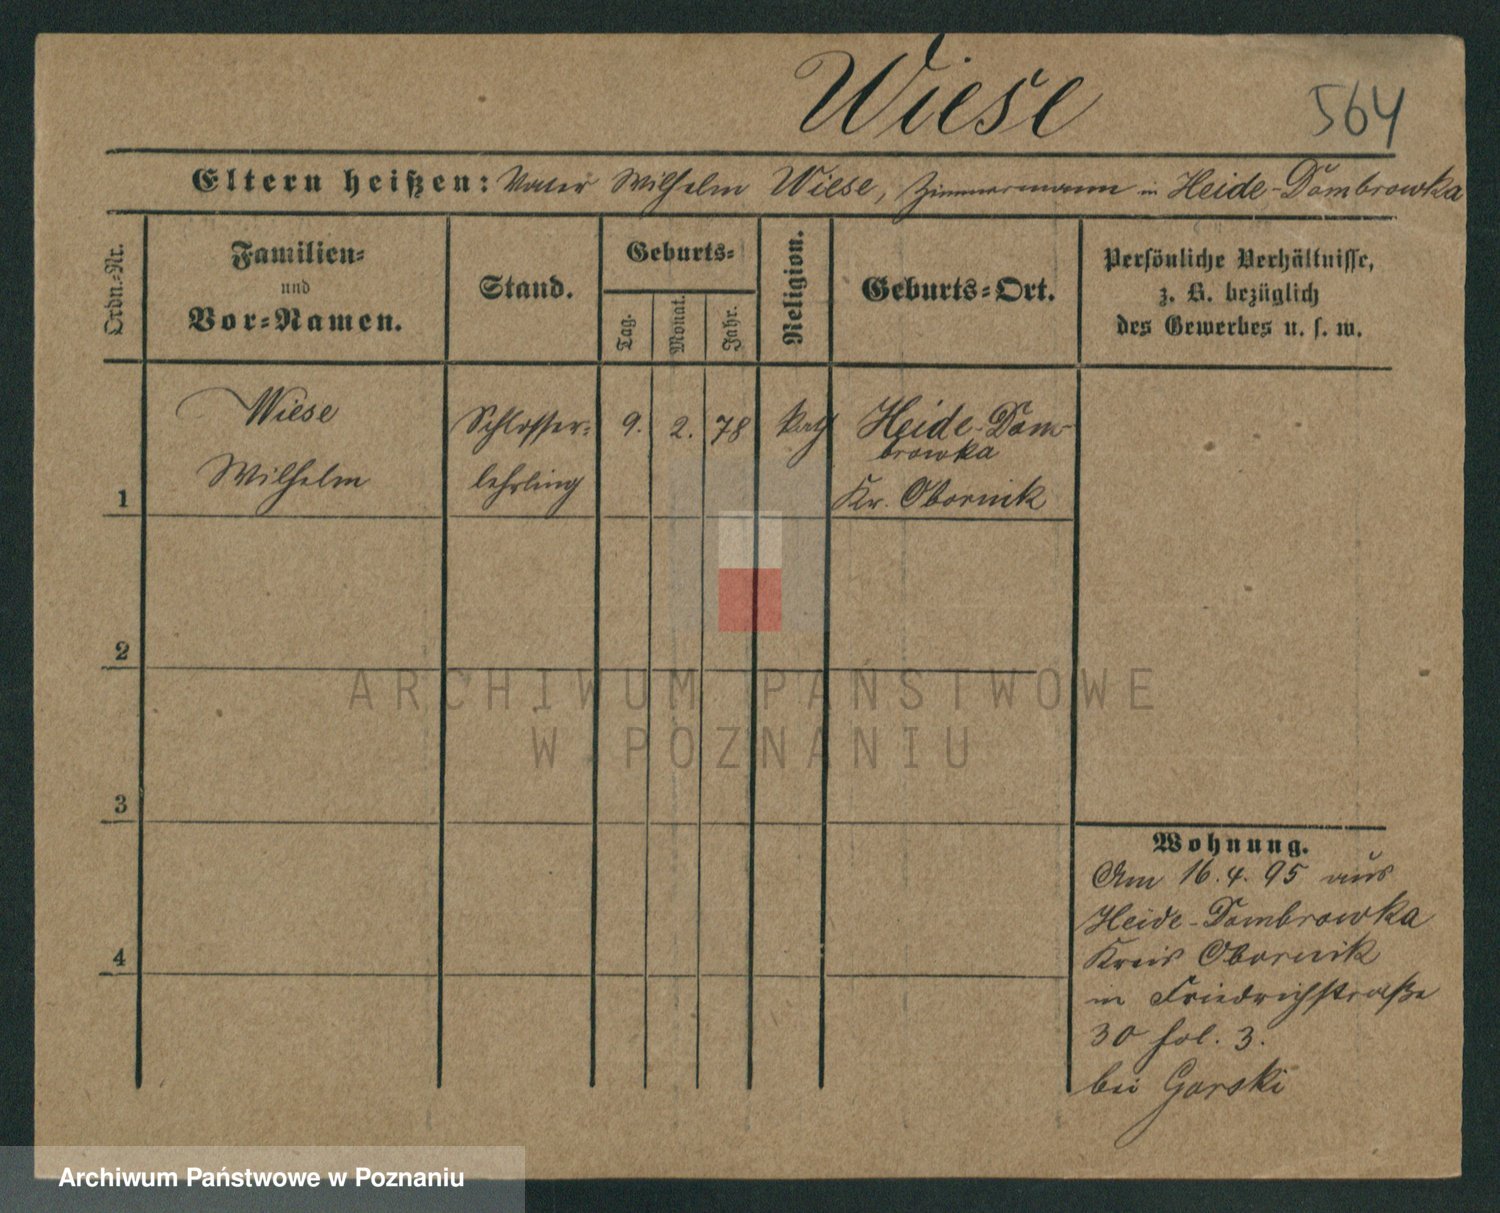 Wiese
564
Eltern heißen: Vater Wilhelm Wiese, Zimmermann in Heide-Dombrowka
Ordn.-Nr.
Familien-
und
Vor-Namen.
Stand.
Geburts-
Tag.
Monat.
Jahr.
Religion.
Geburts-Ort.
Persönliche Verhältnisse,
z. B. bezüglich
des Gewerbes u. s. w.
1
Wiese
Wilhelm
Schlosser-
lehrling
9.
2.
78
kath
Heide-Dom-
browka
Kr. Obornik
2
3
4
Wohnung.
Am 16.4.95 aus
Heide-Dombrowka
Kreis Obornik
in Friedrichstraße
30 fol. 3.
bei Gorski
ARCHIWUM PAŃSTWOWE
W POZNANIU
Archiwum Państwowe w Poznaniu